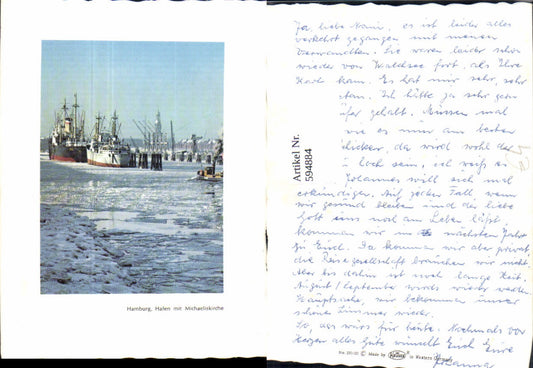 Hamburg, Hafen mit Michaeliskirche
Ja, liebe Nani, es ist leider alles
verkehrt gegangen mit meinen
Verwandten. Sie waren leider schon
wieder von Waldsee fort, als Ihre
Karte kam. Es hat mir sehr, sehr
Ich hätte ja sehr gern
gehabt. Müssen mal
wie es nun am besten
da wird wohl der
Loch sein, ich
Johannes will sich mal
erkundigen. Auf jeden Fall wenn
wir gesund bleiben und der liebe
Gott uns noch am Leben läßt
kommen wir im nächsten Jahr
zu Euch. Da kommen wir aber privat,
die Reisegesellschaft brauchen wir nicht.
Aber bis dahin ist noch lange Zeit.
August/September wirds wieder werden.
Hauptsache, wir bekommen unser
schönes Zimmer wieder.
So, das wärs für heute. Nochmals von
Herzen alles Gute wünscht Euch Eure
Johanna
Artikel Nr.
594884
© Made by in Western Germany